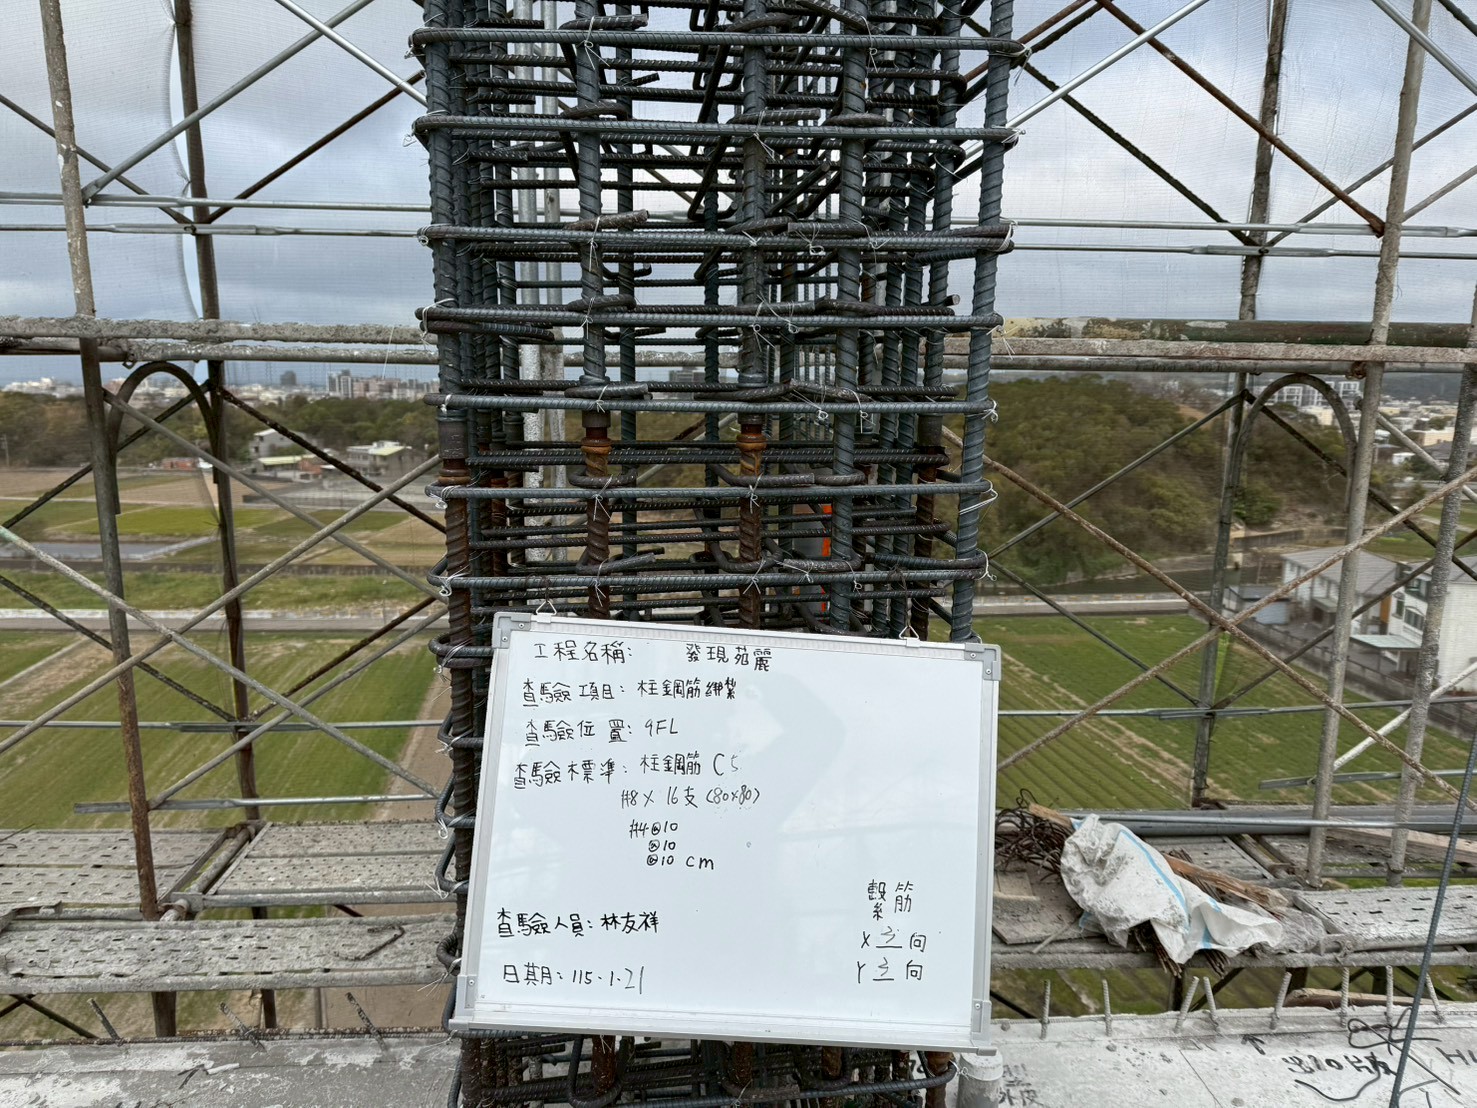 工程名稱: 發現苑麗
查驗項目: 柱鋼筋綁紮
查驗位置: 9FL
查驗標準: 柱鋼筋 C5
#8 x 16支 (80x80)
#4@10
@10
@10 cm
繫筋
X 3 向
Y 3 向
查驗人員: 林友祥
日期: 115.1.21